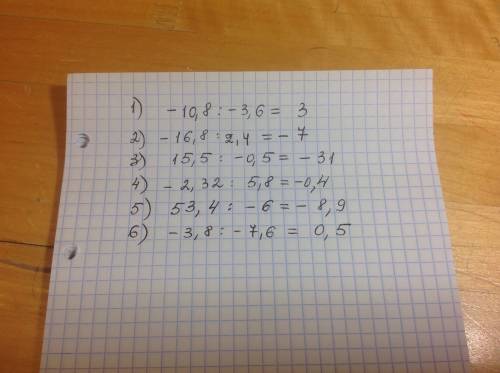 1) -10,8 : -3,6 = 3
2) -16,8 : 2,4 = - 7
3) 15,5 : -0,5 = - 31
4) - 2,32 : 5,8 = -0,4
5) 53,4 : - 6 = - 8,9
6) -3,8 : - 7,6 = 0,5